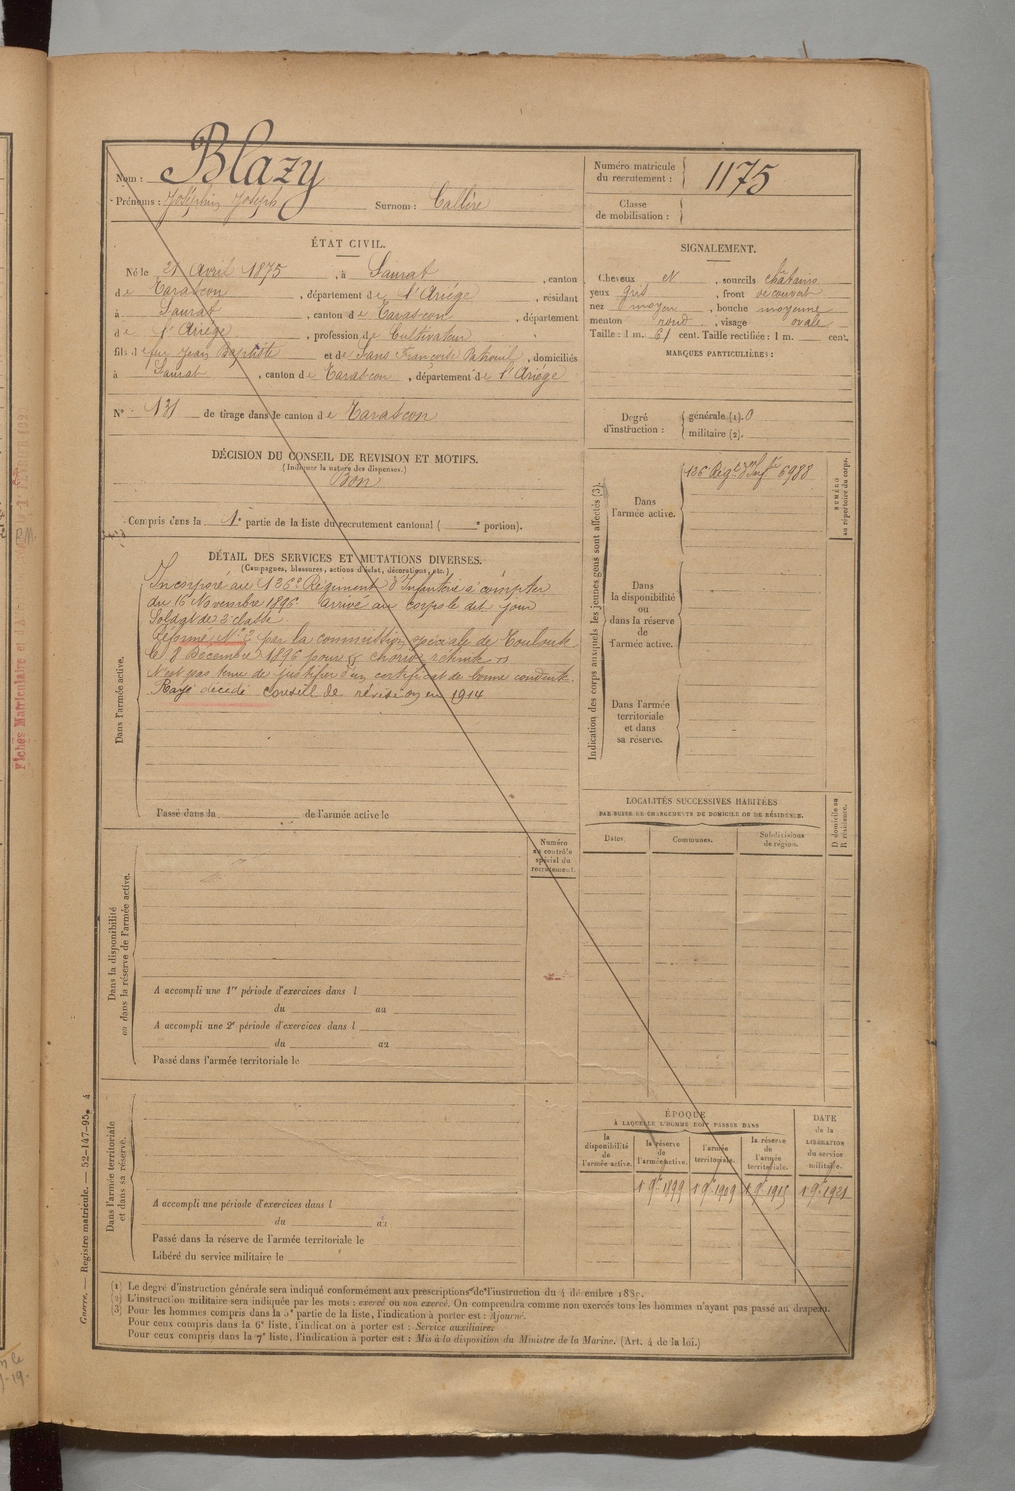 Nom : Blazy
Prénoms : Joséphin Joseph Surnom : Callère
Numéro matricule du recrutement : 1175
Classe de mobilisation :
ÉTAT CIVIL.
Né le 21 Avril 1875, à Saurat, canton
de Tarascon, département de l'Ariége, résidant
à Saurat, canton de Tarascon, département
de l'Ariége, profession de Cultivateur
fils de feu Jean Baptiste et de Sans Françoise, domiciliés
à Saurat, canton de Tarascon, département de l'Ariége
N° 131 de tirage dans le canton de Tarascon
SIGNALEMENT.
Cheveux N, sourcils châtains
yeux gris, front découvert
nez moyen, bouche moyenne
menton rond, visage ovale
Taille : 1 m. 61 cent. Taille rectifiée : 1 m. cent.
MARQUES PARTICULIÈRES :
Degré d'instruction :
générale (1). 0
militaire (2).
DÉCISION DU CONSEIL DE REVISION ET MOTIFS.
(Indiquer la nature des dispenses.)
Bon
Compris dans la 1e partie de la liste du recrutement cantonal ( e portion).
DÉTAIL DES SERVICES ET MUTATIONS DIVERSES.
(Campagnes, blessures, actions d'éclat, décorations, etc.)
Dans l'armée active.
Incorporé au 126e Régiment d'Infanterie à compter
du 16 Novembre 1896. arrivé au corps le dit jour
Soldat de 2e classe.
Réformé N° 2 par la commission spéciale de Toulouse
le 8 Décembre 1896 pour
N'est pas tenu de justifier d'un certificat de bonne conduite.
Rayé décédé Conseil de révision en 1914
Passé dans la de l'armée active le
Indication des corps auxquels les jeunes gens sont affectés (3).
Dans l'armée active.
126 Régt d'Infie 6988
NUMÉRO au répertoire du corps.
Dans la disponibilité ou dans la réserve de l'armée active.
Dans l'armée territoriale et dans sa réserve.
LOCALITÉS SUCCESSIVES HABITÉES
PAR SUITE DE CHANGEMENTS DE DOMICILE OU DE RÉSIDENCE.
Dates. Communes. Subdivisions de région.
D. domicile ou R. résidence.
Numéro au contrôle spécial du recrutement.
Dans la disponibilité ou dans la réserve de l'armée active.
A accompli une 1re période d'exercices dans l
du au
A accompli une 2e période d'exercices dans l
du au
Passé dans l'armée territoriale le
Dans l'armée territoriale et dans sa réserve.
A accompli une période d'exercices dans l
du au
Passé dans la réserve de l'armée territoriale le
Libéré du service militaire le
ÉPOQUE
À LAQUELLE L'HOMME DOIT PASSER DANS
la disponibilité de l'armée active.
la réserve de l'armée active.
l'armée territoriale.
la réserve de l'armée territoriale.
DATE de la LIBÉRATION du service militaire.
1 9e 1899 1 9e 1909 1 9e 1915 1 9e 1921
(1) Le degré d'instruction générale sera indiqué conformément aux prescriptions de l'instruction du 4 décembre 1889.
(2) L'instruction militaire sera indiquée par les mots : exercé ou non exercé. On comprendra comme non exercés tous les hommes n'ayant pas passé au drapeau.
(3) Pour les hommes compris dans la 5e partie de la liste, l'indication à porter est : Ajourné.
Pour ceux compris dans la 6e liste, l'indication à porter est : Service auxiliaire.
Pour ceux compris dans la 7e liste, l'indication à porter est : Mis à la disposition du Ministre de la Marine. (Art. 4 de la loi.)
Guerre. — Registre matricule. — 52-147-95. 4